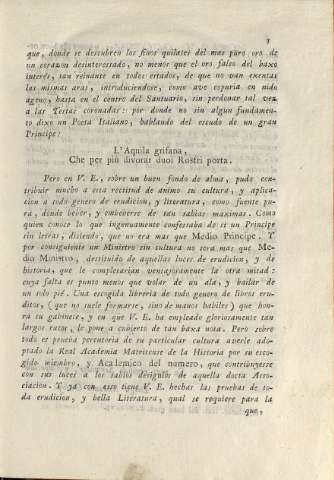 3
que, donde se descubren los finos quilates del mas puro oro de
un corazon desinteressado, no menor que el oro falso del baxo
interés, tan reinante en todos estados, de que no van exentas
las mismas aras, introduciendose, como ave espuria en nido
ageno, hasta en el centro del Santuario, sin perdonar tal vez
a las Testas coronadas: por donde no sin algun fundamen-
to dixo un Poeta Italiano, hablando del escudo de un gran
Principe:
L'Aquila grifana,
Che per più divorar duoi Rostri porta.
Pero en V. E., sobre un buen fondo de alma, pudo con-
tribuir mucho a esta rectitud de animo su cultura, y aplica-
cion a todo genero de erudicion, y literatura, como fuente pu-
ra, donde bebér, y embeberse de tan sabias maximas. Como
quien conoce lo que ingenuamente confessaba de sí un Principe
sin letras, diciendo, que no era mas que Medio Principe. Y
por consiguiente un Ministro sin cultura no será mas que Me-
dio Ministro, destituido de aquellas luces de erudicion, y de
historia, que le completarian ventajosamente la otra mitad:
cuya falta es punto menos que volar de un ala, y bailar de
un solo pié. Una escogida libreria de todo genero de libros eru-
ditos, (que no suele formarse, sino de manos habiles) que hon-
ra su gabinete, y en que V. E. ha empleado gloriosamente tan
largos ratos, le pone a cubierto de tan baxa nota. Pero sobre
todo es prueba perentoria de su particular cultura averle ado-
ptado la Real Academia Matritense de la Historia por su esco-
gido miembro, y Academico del numero, que contribuyesse
con sus luces a los sabios designios de aquella docta Asso-
ciacion. Y ya con esto tiene V. E. hechas las pruebas de to-
da erudicion, y bella Literatura, qual se requiere para la
que,